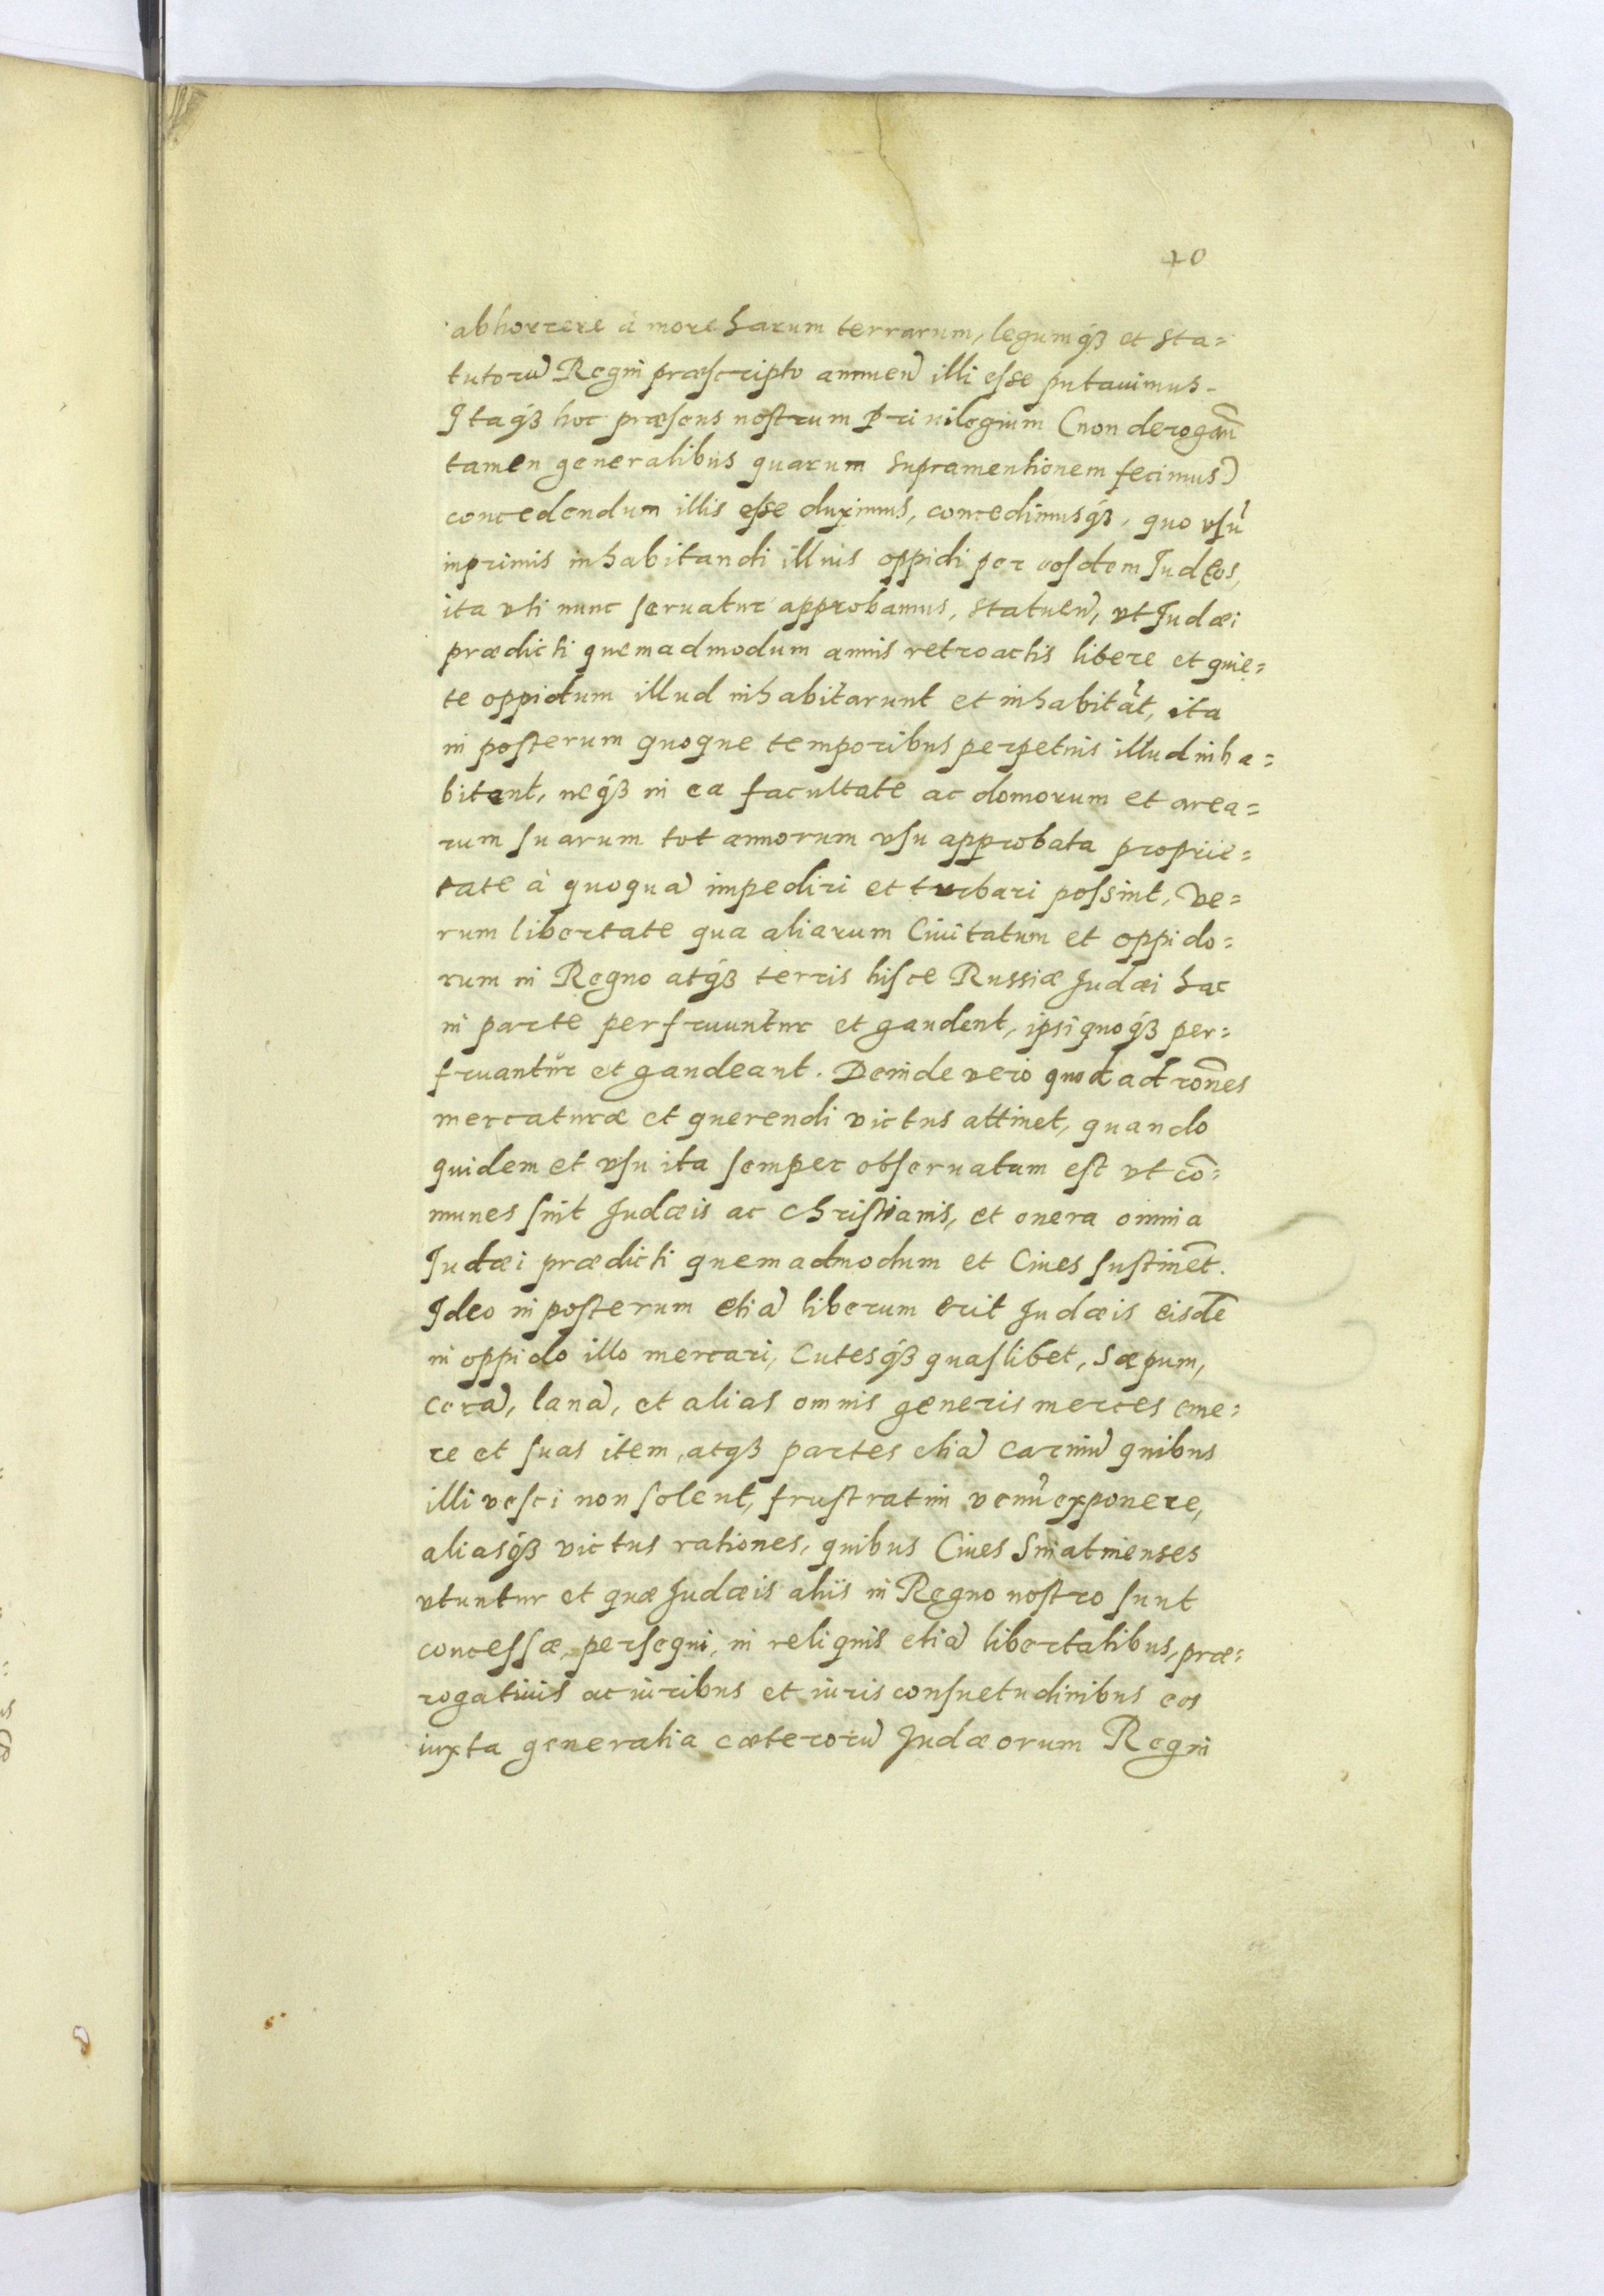 40
abhorrere à more harum terrarum, legumq́ꝫ et sta=
tutorũ Regni præscripto annuen̄ illi esse putauimus.
Itaq́ꝫ hoc præsens nostrum Priuilegium (non derogan̄
tamen generalibus quarum supra mentionem fecimus)
concedendum illis esse duximus, concedimusq́ꝫ, quo usũ
inprimis inhabitandi illius oppidi per eosdem Judęos,
ita uti nunc seruatur approbamus, statuen̄, ut Judæi
prædicti quemadmodum annis retroactis libere et quie=
te oppidum illud inhabitarunt et inhabitãt, ita
in posterum quoque temporibus perpetuis illud inha=
bitent, neq́ꝫ in ea facultate ac domorum et area=
rum suarum tot annorum usu approbata proprie=
tate à quoquã impediri et turbari possint, Ve=
rum libertate qua aliarum Ciuitatum et oppido=
rum in Regno atq́ꝫ terris hisce Russiæ Judæi hac
in parte perfruuntur et gaudent, ipsi quoq́ꝫ per=
fruantur et gaudeant. Deinde vero quod ad rōnes
mercaturæ et querendi victus attinet, quando
quidem et usu ita semper obseruatum est ut cō=
munes sint Judæis ac Christianis, et onera omnia
Judæi prædicti quemadmodum et Ciues sustinēt.
Ideo in posterum etiã liberum erit Judæis eisdē
in oppido illo mercari, Cutesq́ꝫ quaslibet, Sæpum,
Cerã, lanã, et alias omnis generis merces eme=
re et suas item, atqꝫ partes etiã carniũ quibus
illi vesci non solent, frustratim venũ exponere,
aliasq́ꝫ victus rationes, quibus Ciues Sniatinenses
utuntur et quæ Judæis alijs in Regno nostro sunt
concessæ, persequi, in reliquis etiã libertatibus, præ=
rogatiuis ac iuribus et iuris consuetudinibus eos
iuxta generalia cæterorũ Judæorum Regni